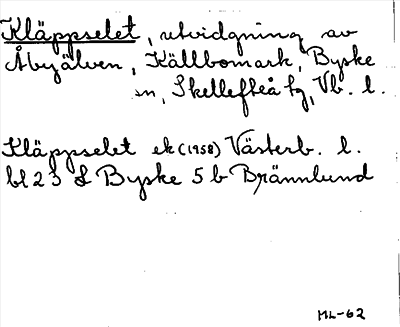 Kläppselet, utvidgning av
Åbyälven, Källbomark, Byske
sn, Skellefteå tg, Vb. l.
Kläppselet ek (1958) Västerb. l.
bl 23 f Byske 5 b Brännlund
ML-62